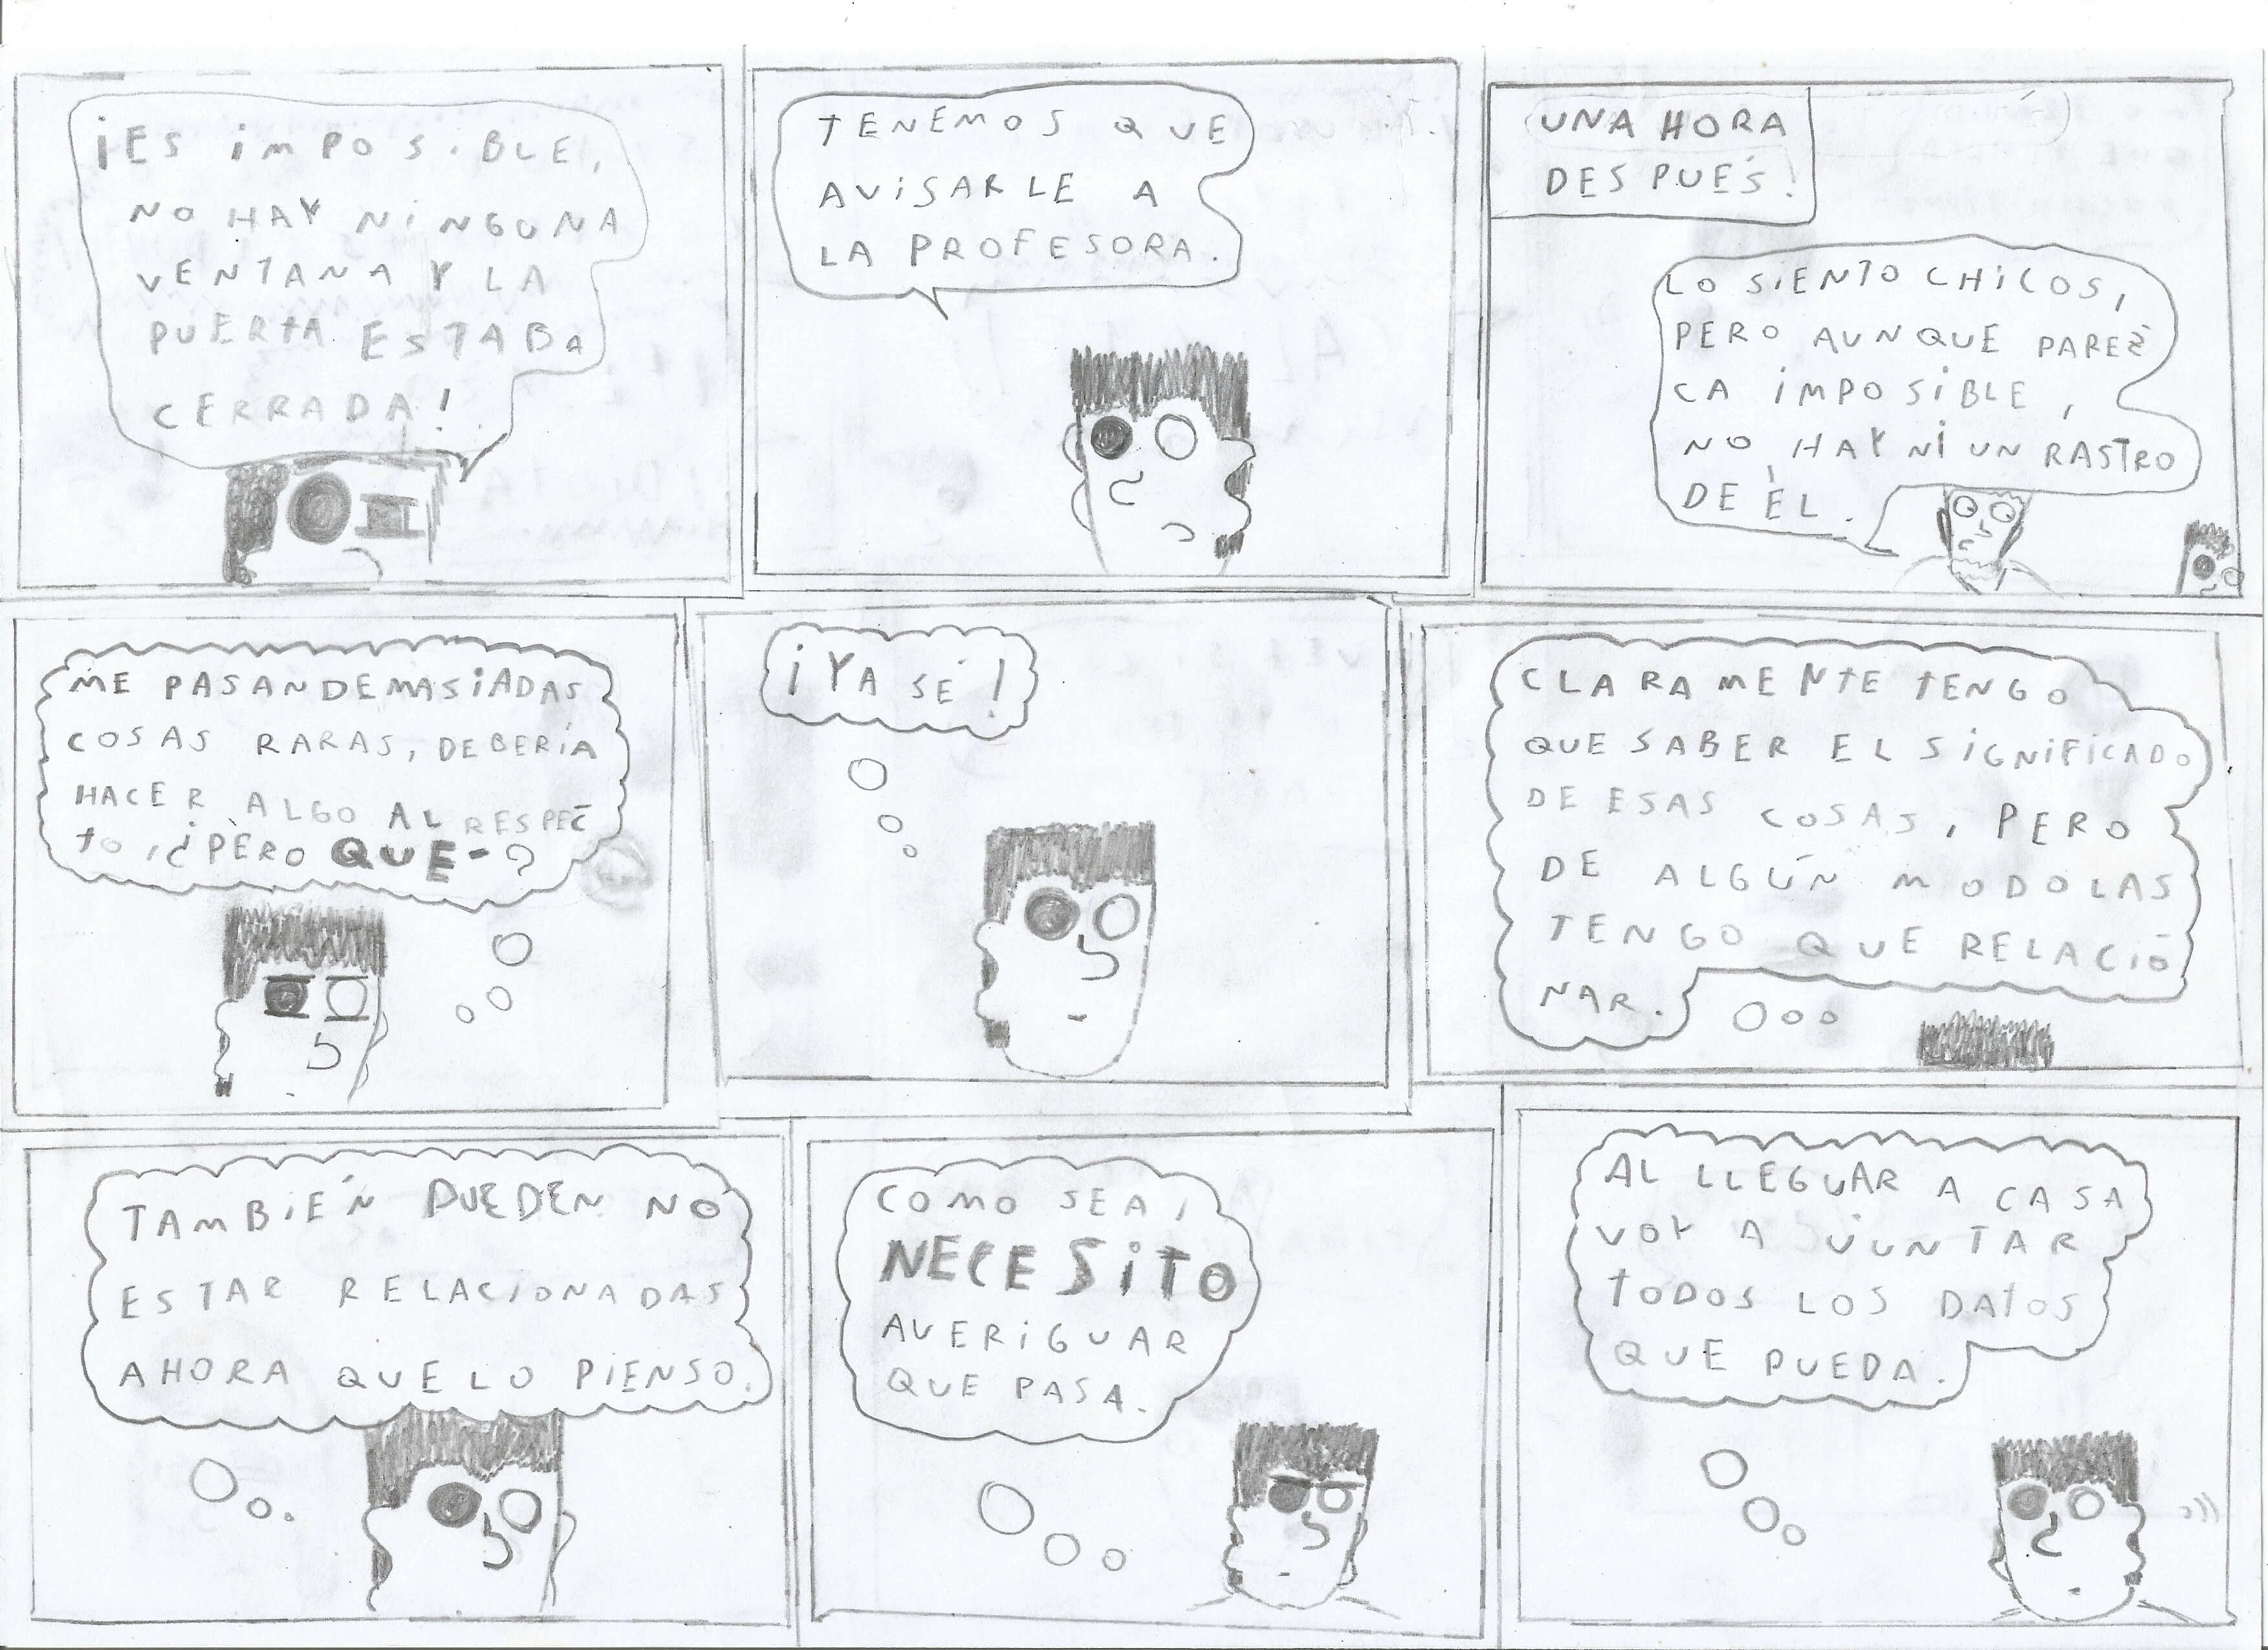 ¡ES iMPOSiBLE,
NO HAY NiNGUNA
VENTANA Y LA
PUERTA ESTABA
CERRADA!
TENEMOS QUE
AViSARLE A
LA PROFESORA.
UNA HORA
DESPUÉS!
LO SiENTO CHiCOS,
PERO AUNQUE PAREZ
CA iMPOSiBLE,
NO HAY Ni UN RASTRO
DE ÉL.
ME PASAN DEMASiADAS
COSAS RARAS, DEBERÍA
HACER ALGO AL RESPEC
TO, ¿PERO QUE-?
¡YA SÉ!
CLARAMENTE TENGO
QUE SABER EL SiGNiFiCADO
DE ESAS COSAS, PERO
DE ALGÚN MODO LAS
TENGO QUE RELACiO
NAR.
TAMBiÉN PUEDEN NO
ESTAR RELACiONADAS
AHORA QUE LO PiENSO.
COMO SEA,
NECESiTO
AVERiGUAR
QUE PASA.
AL LLEGUAR A CASA
VOY A JUNTAR
TODOS LOS DATOS
QUE PUEDA.